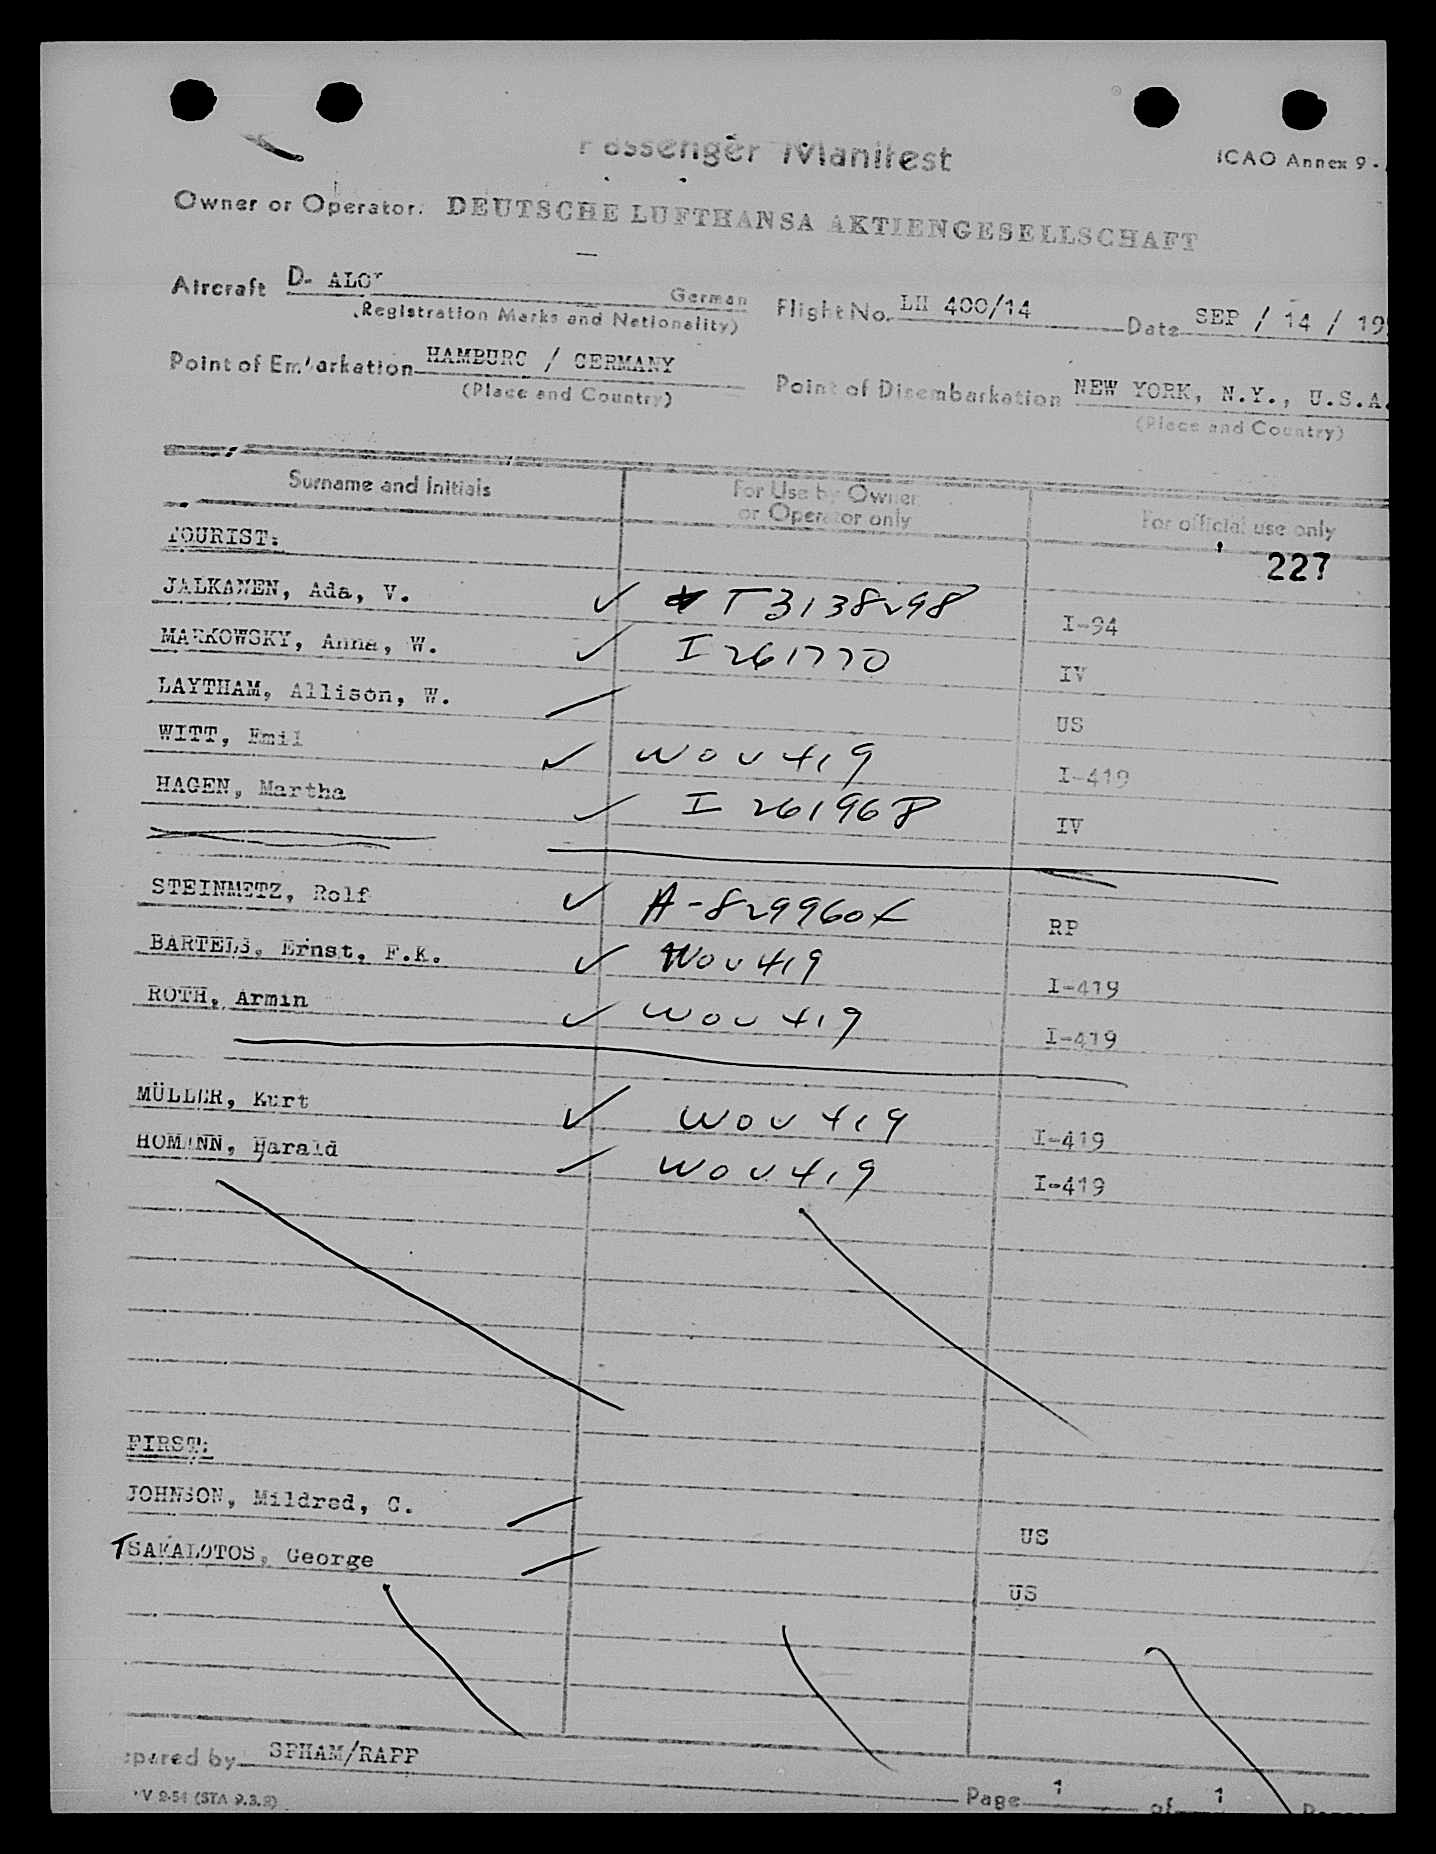 Passenger Manifest
ICAO Annex 9 -
Owner or Operator: DEUTSCHE LUFTHANSA AKTIENGESELLSCHAFT
Aircraft D- German Flight No. LH 400/14 Date SEP / 14 / 19
(Registration Marks and Nationality)
Point of Embarkation HAMBURG / GERMANY Point of Disembarkation NEW YORK, N.Y., U.S.A.
(Place and Country) (Place and Country)
Surname and Initials For Use by Owner or Operator only For official use only
TOURIST: 227
JALKANEN, Ada, V. T3138298 I-94
MARKOWSKY, Anna, W. I 261770 IV
LAYTHAM, Allison, W. US
WITT, Emil WOV 419 I-419
HAGEN, Martha I 261968 IV
STEINMETZ, Rolf A-8299604 RP
BARTELS, Ernst, F.K. WOV 419 I-419
ROTH, Armin WOV 419 I-419
MÜLLER, Kurt WOV 419 I-419
HOMANN, Harald WOV 419 I-419
FIRST:
JOHNSON, Mildred, C. US
TSAKALOTOS, George US
epared by SPHAM/RAPP
V 2-54 (STA 9.3.2) Page 1 of 1